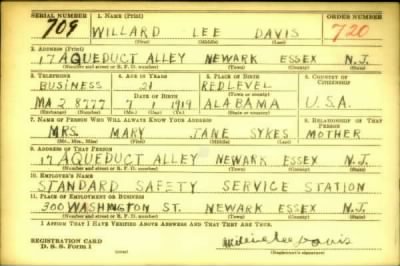 SERIAL NUMBER 1. NAME (Print) ORDER NUMBER
709 WILLARD LEE DAVIS 720
(First) (Middle) (Last)
2. ADDRESS (Print)
17 AQUEDUCT ALLEY NEWARK ESSEX N.J.
(Number and street or R. F. D. number) (Town) (County) (State)
3. TELEPHONE 4. AGE IN YEARS 5. PLACE OF BIRTH 6. COUNTRY OF CITIZENSHIP
BUSINESS 21 REDLEVEL
DATE OF BIRTH
MA 2 8777 7 1 1919 ALABAMA U.S.A.
(Exchange) (Number) (Mo.) (Day) (Yr.) (State or country)
7. NAME OF PERSON WHO WILL ALWAYS KNOW YOUR ADDRESS 8. RELATIONSHIP OF THAT PERSON
MRS. MARY JANE SYKES MOTHER
(Mr., Mrs., Miss) (First) (Middle) (Last)
9. ADDRESS OF THAT PERSON
17 AQUEDUCT ALLEY NEWARK ESSEX N.J.
(Number and street or R. F. D. number) (Town) (County) (State)
10. EMPLOYER'S NAME
STANDARD SAFETY SERVICE STATION
11. PLACE OF EMPLOYMENT OR BUSINESS
300 WASHINGTON ST. NEWARK ESSEX N.J.
(Number and street or R. F. D. number) (Town) (County) (State)
I AFFIRM THAT I HAVE VERIFIED ABOVE ANSWERS AND THAT THEY ARE TRUE.
REGISTRATION CARD
D. S. S. Form 1 (Registrant's signature)